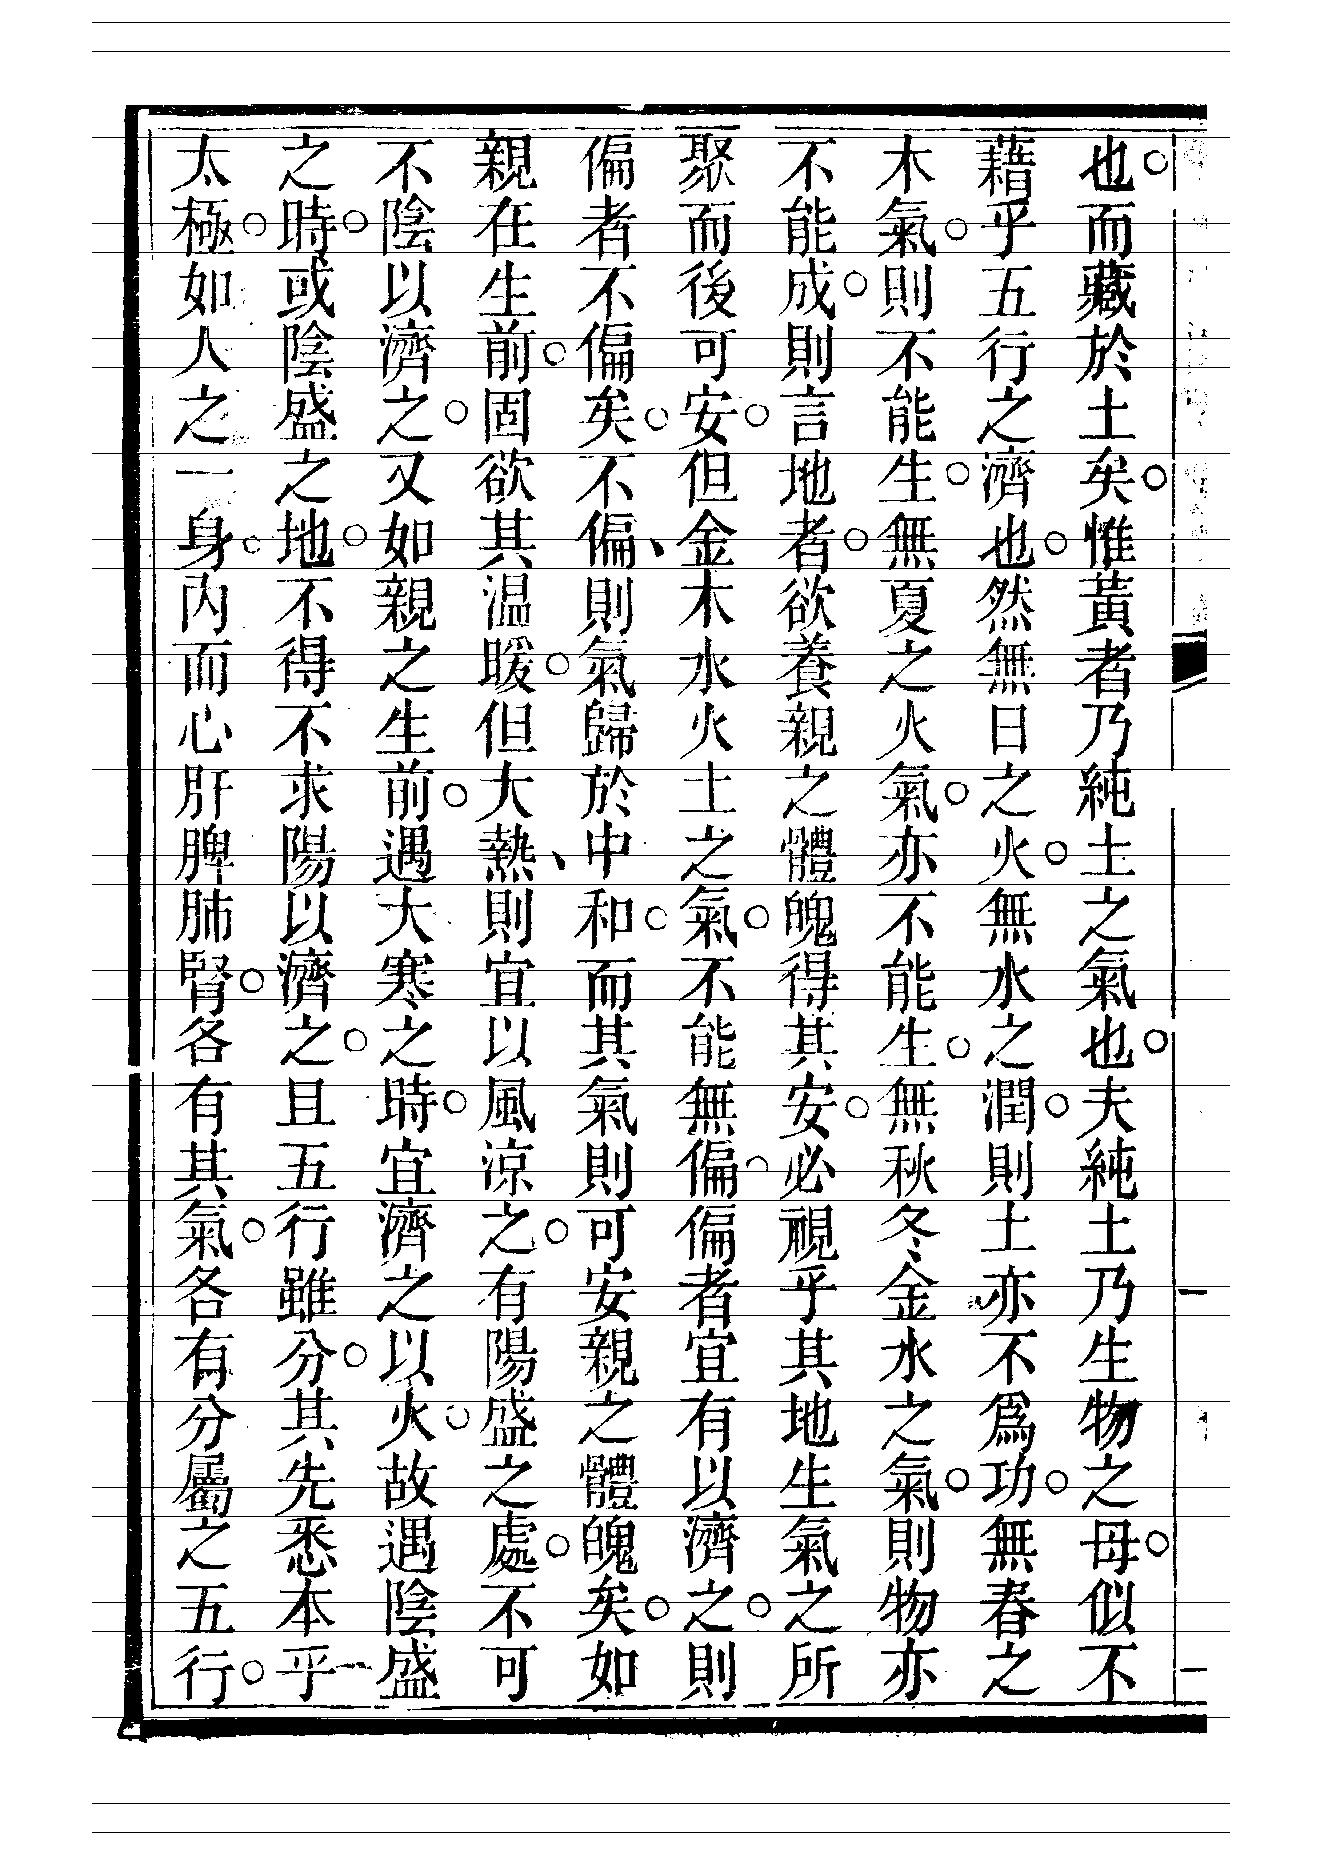 也。而藏於土矣。惟黃者乃純土之氣也。夫純土乃生物之母。似不
藉乎五行之濟也。然無日之火。無水之潤。則土亦不爲功。無春之
木氣。則不能生。無夏之火氣。亦不能生。無秋冬金水之氣。則物亦
不能成。則言地者。欲養親之體魄得其安。必視乎其地生氣之所
聚而後可安。但金木水火土之氣。不能無偏。偏者宜有以濟之。則
偏者不偏矣。不偏、則氣歸於中和。而其氣則可安親之體魄矣。如
親在生前。固欲其温暖。但大熱、則宜以風涼之。有陽盛之處。不可
不陰以濟之。又如親之生前。遇大寒之時。宜濟之以火。故遇陰盛
之時。或陰盛之地。不得不求陽以濟之。且五行雖分。其先悉本乎一
太極。如人之一身。內而心肝脾肺腎。各有其氣。各有分屬之五行。